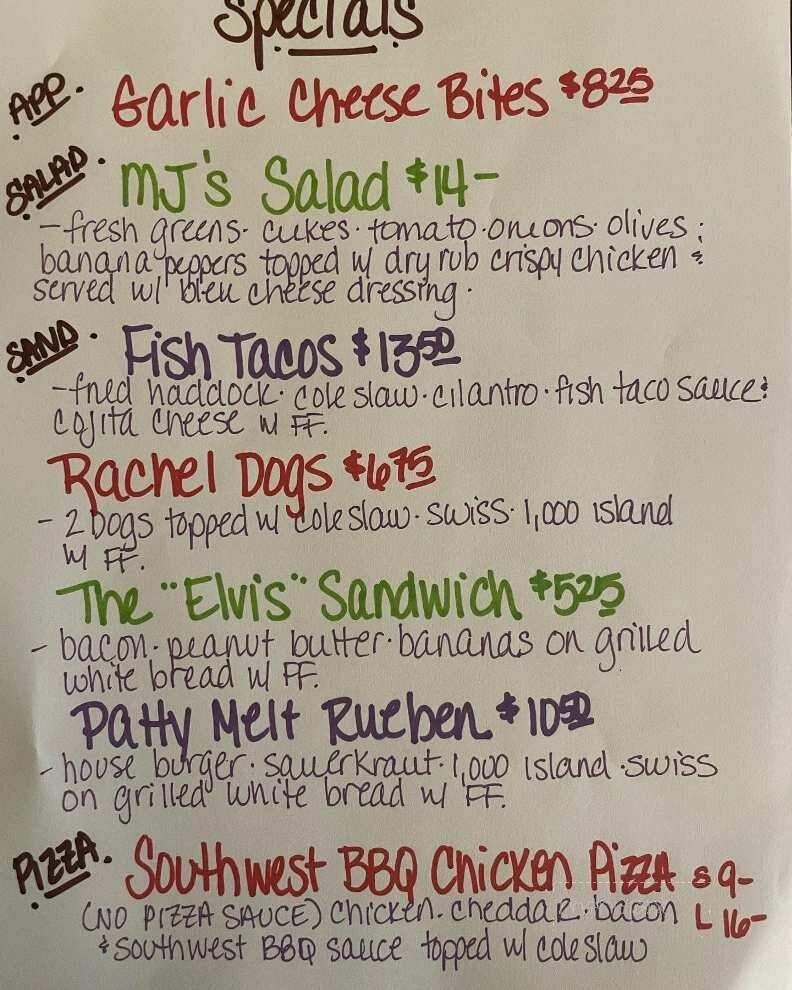 Specials
APP. Garlic Cheese Bites $8 25
SALAD. MJ's Salad $14-
- fresh greens · cukes · tomato · onions · olives ;
banana peppers topped w/ dry rub crispy chicken &
served w/ bleu cheese dressing.
SAND. Fish Tacos $13 50
- fried haddock · coleslaw · cilantro · fish taco sauce &
cojita cheese w/ FF.
Rachel Dogs $6 75
- 2 Dogs topped w/ coleslaw · swiss · 1,000 island
w/ FF.
The "Elvis" Sandwich $5 25
- bacon · peanut butter · bananas on grilled
white bread w/ FF.
Patty Melt Rueben $10 50
- house burger · sauerkraut · 1,000 island · swiss
on grilled white bread w/ FF.
PIZZA. Southwest BBQ Chicken Pizza S 9-
(NO PIZZA SAUCE) chicken · cheddar · bacon L 16-
& southwest BBQ sauce topped w/ coleslaw